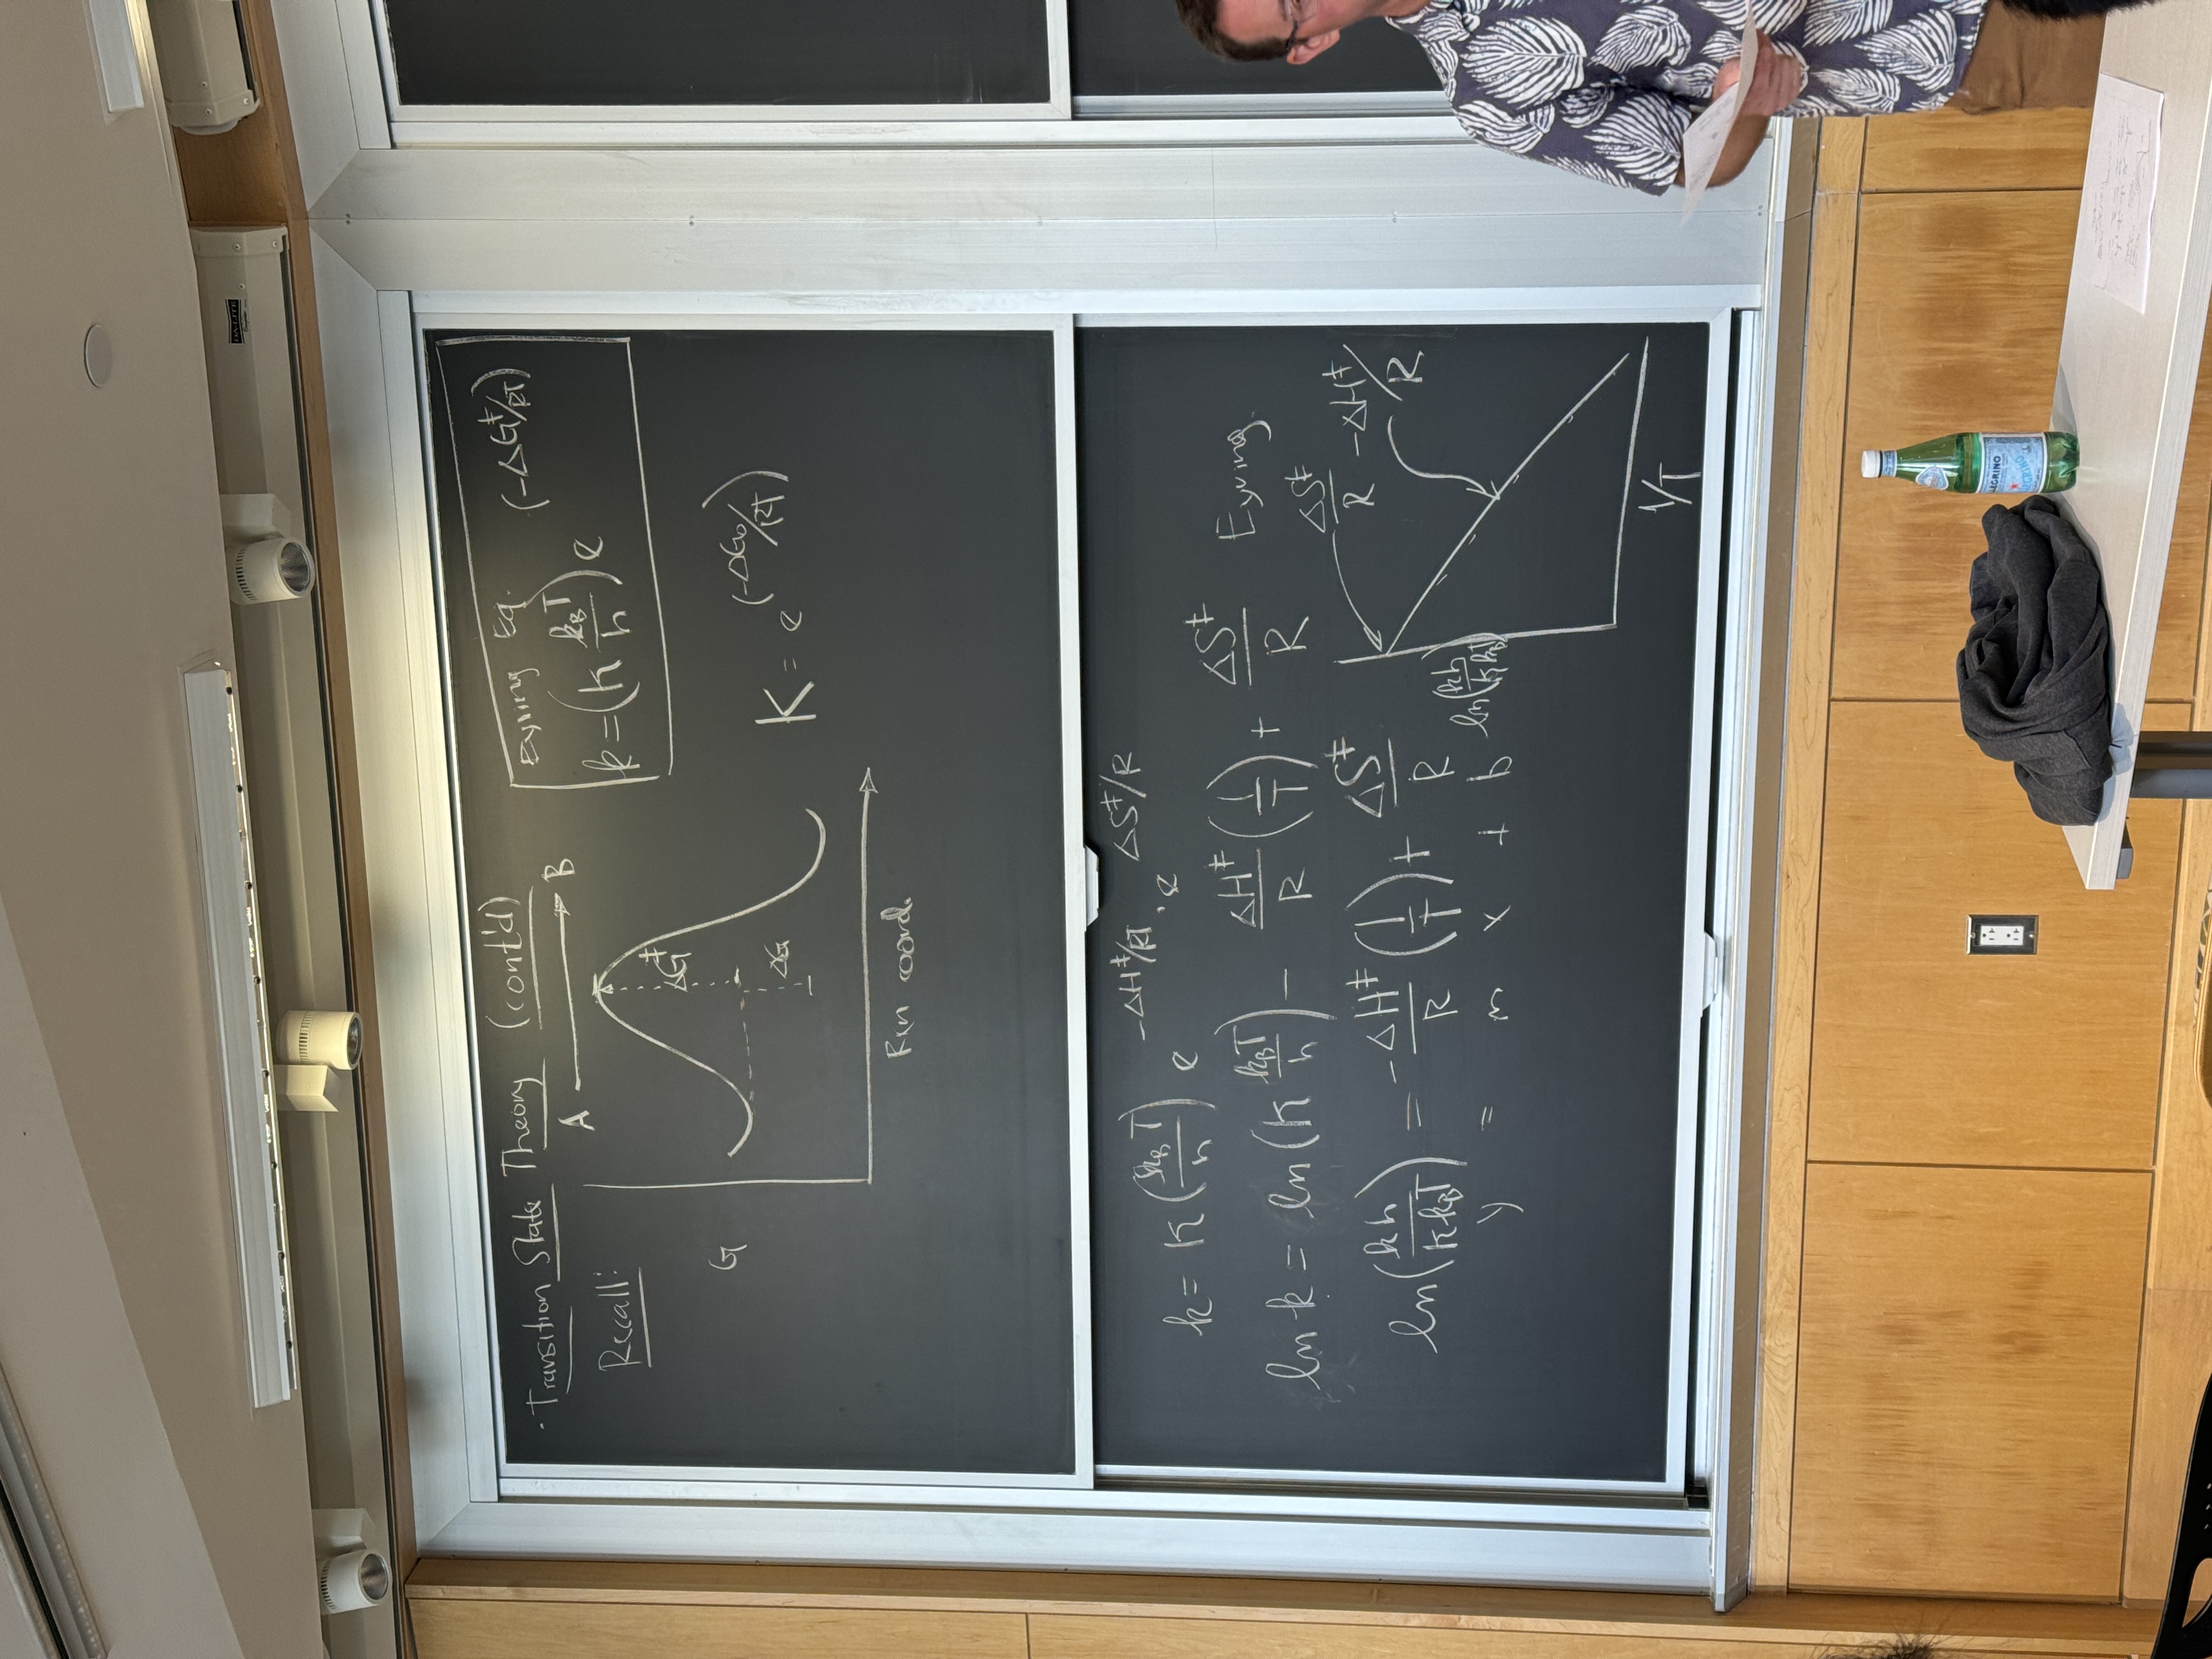 DA-LITE
· Transition State Theory (cont'd)
A → B
Recall:
G
ΔG‡
ΔG
Rxn coord.
Eyring Eq.
k = (κ k_B T / h) e^(-ΔG‡/RT)
K = e^(-ΔG₀/RT)
k = κ (k_B T / h) e^(-ΔH‡/RT) · e^(ΔS‡/R)
ln k = ln (κ k_B T / h) - ΔH‡/R (1/T) + ΔS‡/R
ln (kh / κ k_B T) = -ΔH‡/R (1/T) + ΔS‡/R
y = m x + b
Eyring
ΔS‡/R
-ΔH‡/R
ln (kh / κ k_B T)
1/T
LEGRINO
LEGRINO